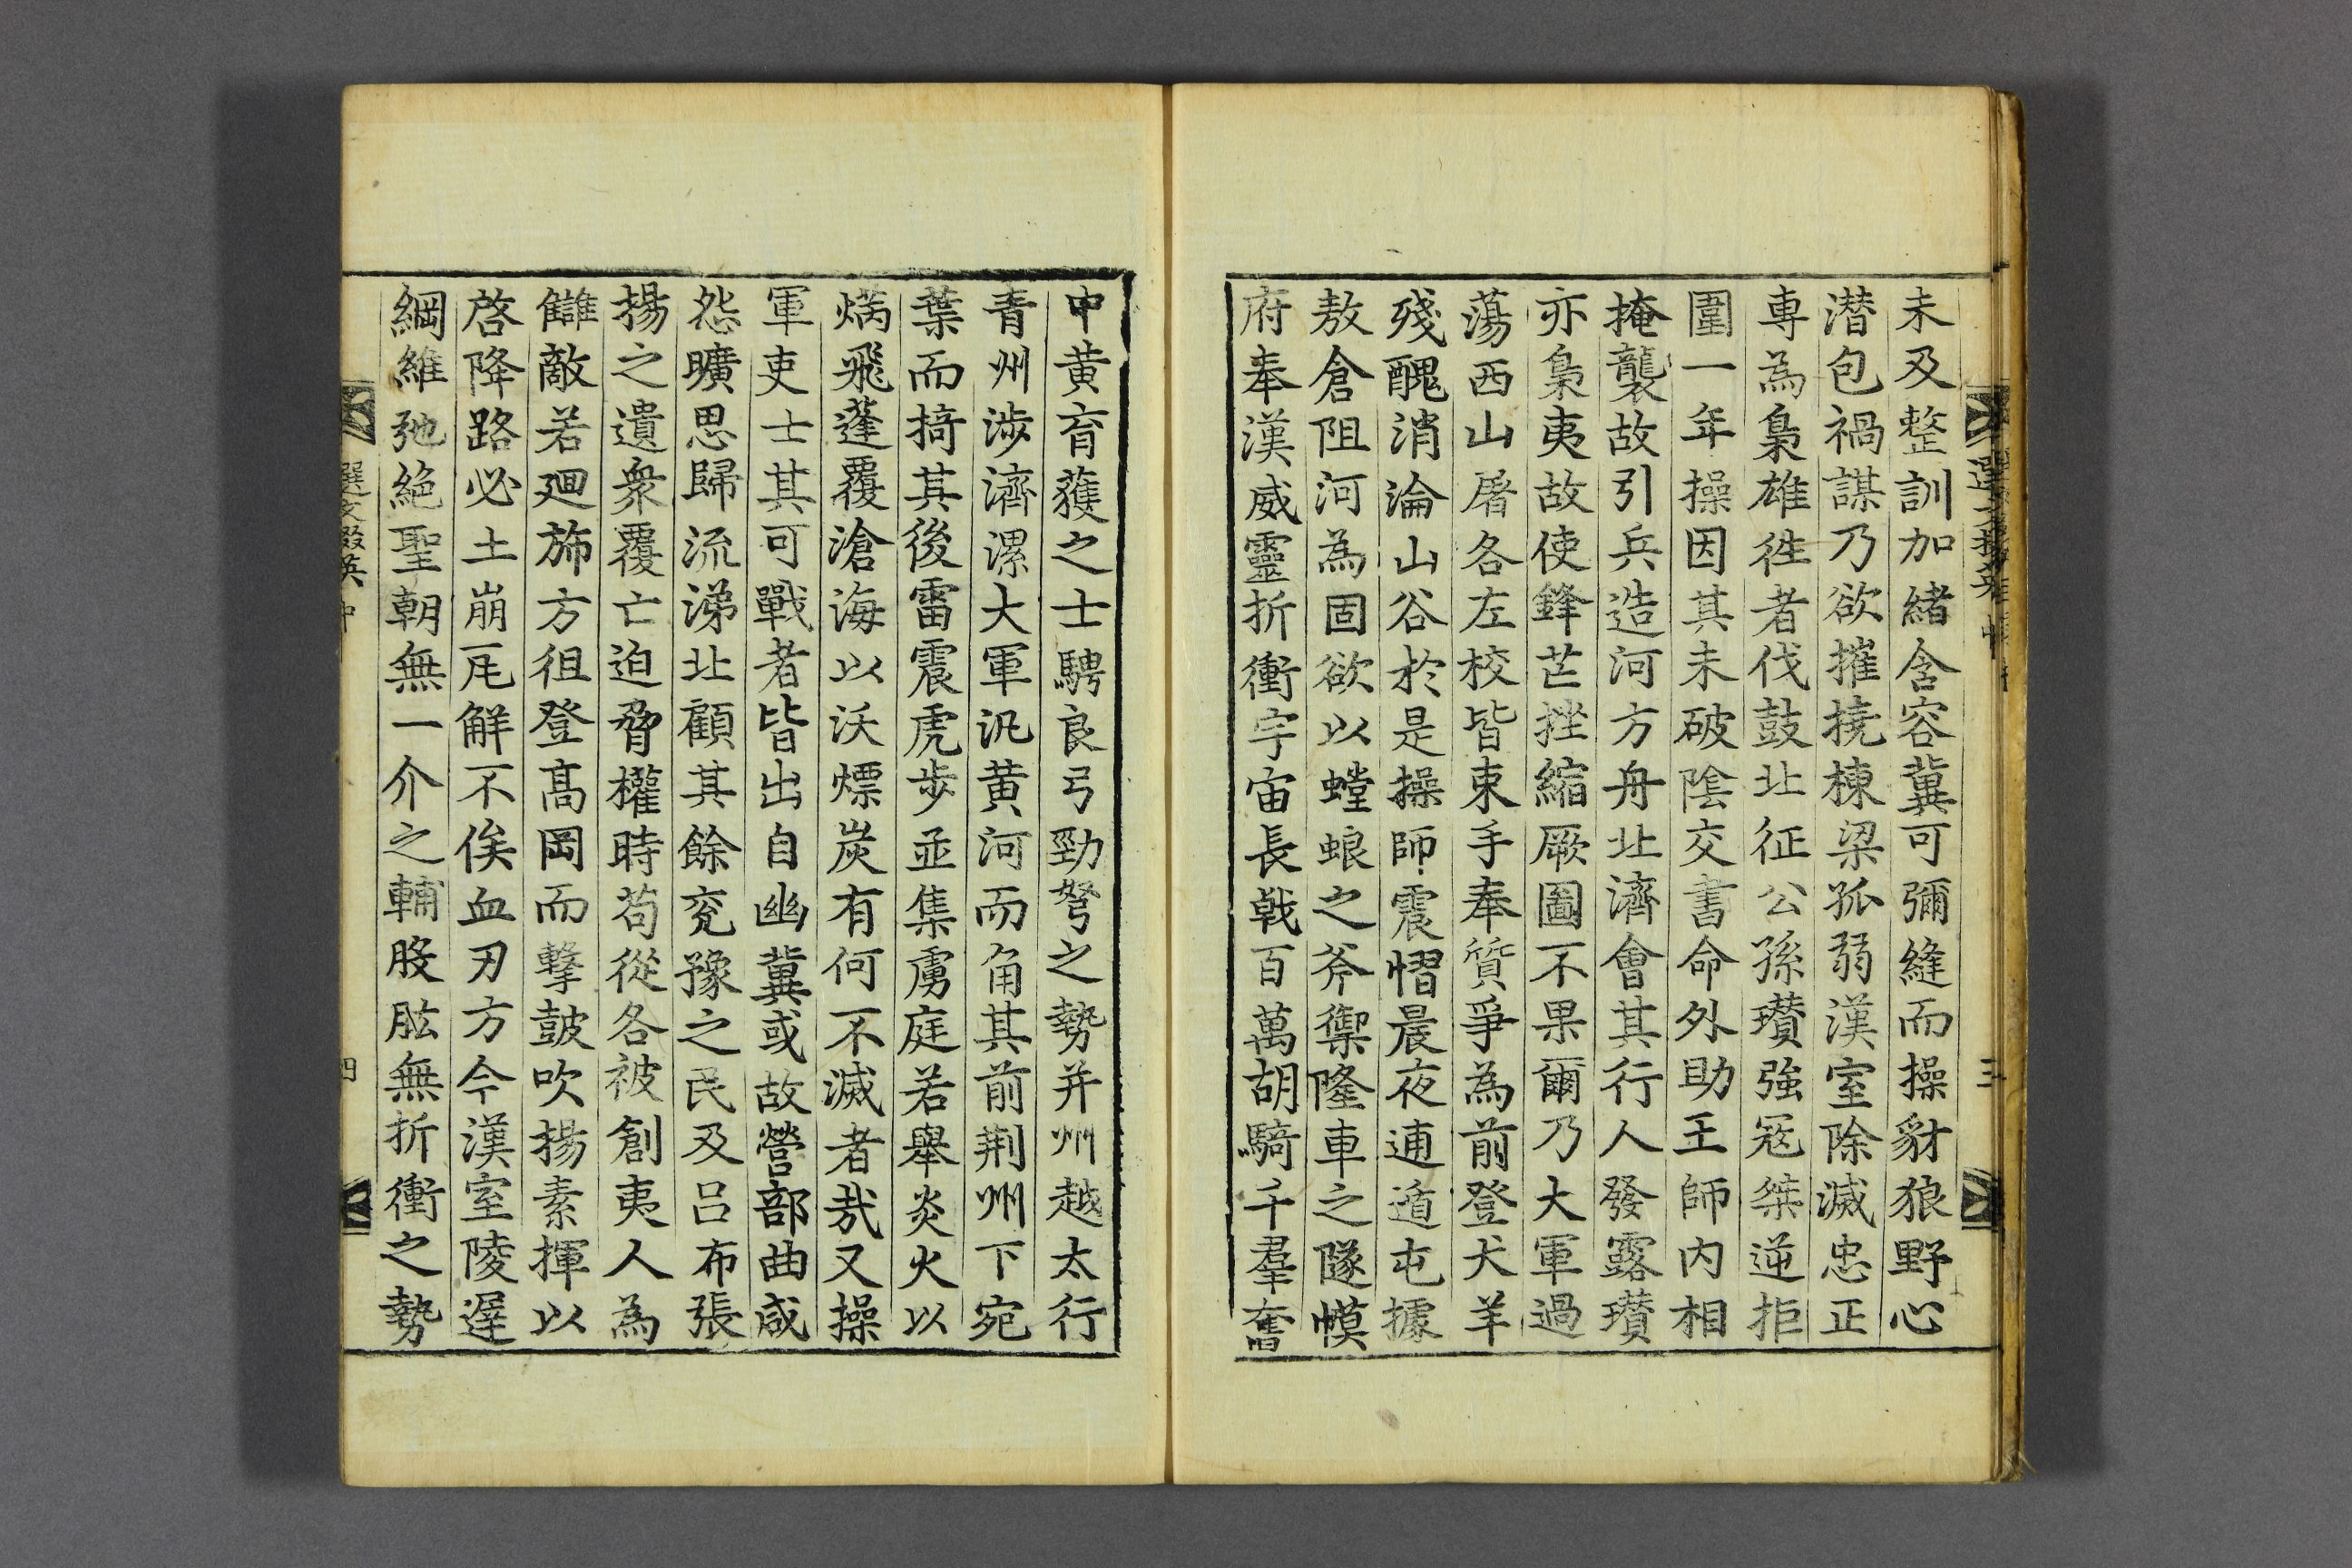 未及整訓加緖含容冀可彌縫而操豺狼野心
潜包禍謀乃欲摧撓棟梁孤弱漢室除滅忠正
專為梟雄徃者伐鼓北征公孫瓉強冦桀逆拒
圍一年操因其未破陰交書命外助王師內相
掩襲故引兵造河方舟北濟會其行人發露瓉
亦梟夷故使鋒芒挫縮厥圖不果爾乃大軍過
蕩西山屠各左校皆束手奉質爭為前登犬羊
殘醜消淪山谷於是操師震慴晨夜逋遁屯據
敖倉阻河為固欲以螳蜋之斧禦隆車之隧幙
府奉漢威靈折衝宇宙長戟百萬胡騎千羣奮
中黃育獲之士騁良弓勁弩之勢并州越太行
青州涉濟漯大軍汎黃河而角其前荆州下宛
葉而掎其後雷震虎步並集虜庭若舉炎火以
焫飛蓬覆滄海以沃熛炭有何不滅者㦲又操
軍吏士其可戰者皆出自幽冀或故營部曲咸
怨曠思歸流涕北顧其餘兖豫之民及呂布張
揚之遺衆覆亡迫脅權時苟從各被創夷人為
讎敵若廻斾方徂登高岡而擊鼓吹揚素揮以
啓降路必土崩瓦解不俟血刃方今漢室陵遲
綱維弛絕聖朝無一介之輔股肱無折衝之勢
選文掇英 中
四
三